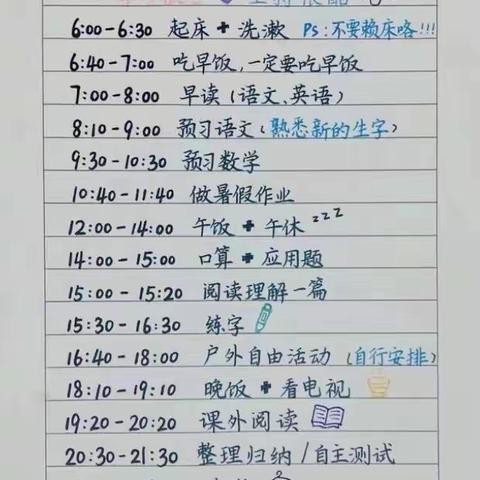 6:00-6:30 起床+洗漱 PS:不要赖床咯!!!
6:40-7:00 吃早饭,一定要吃早饭
7:00-8:00 早读(语文、英语)
8:10-9:00 预习语文(熟悉新的生字)
9:30-10:30 预习数学
10:40-11:40 做暑假作业
12:00-14:00 午饭+午休zzZ
14:00-15:00 口算+应用题
15:00-15:20 阅读理解一篇
15:30-16:30 练字
16:40-18:00 户外自由活动(自行安排)
18:10-19:10 晚饭+看电视
19:20-20:20 课外阅读
20:30-21:30 整理归纳/自主测试